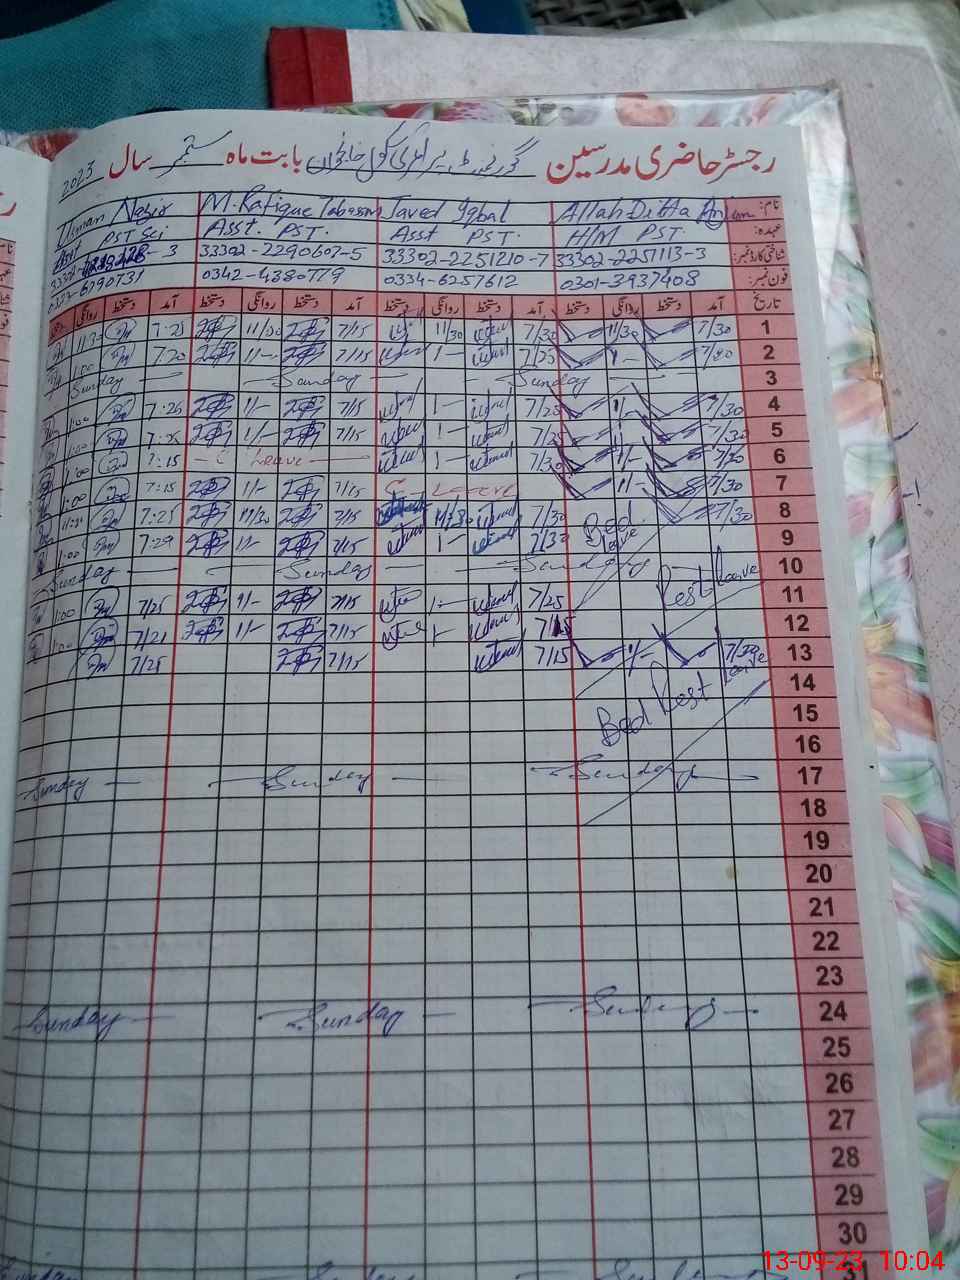 رجسٹر حاضری مدرسین گورنمنٹ پرائمری سکول بابت ماہ ستمبر سال 2023
نام: Allah Ditta Anjum Javed Iqbal M. Rafique Tabassum Usman Nazir
عہدہ: H/M PST. Asst PST. Asst. PST. Asst PST Sci
شناختی کارڈ نمبر: 33302-2251113-3 33302-2251210-7 33302-2290607-5
فون نمبر: 0301-3937408 0334-6257612 0342-4380779
تاریخ آمد دستخط روانگی دستخط آمد دستخط روانگی دستخط آمد دستخط روانگی دستخط آمد دستخط روانگی
1 7/30 11/30 7/30 11/30 7/15 11/30 7:25 11:30
2 7/30 1- 7/25 1- 7/15 11-- 7:20 1:00
3 Sunday Sunday Sunday
4 7/30 1/- 7/25 1- 7/15 1/- 7:26 1:00
5 7/30 1/- 7/25 1- 7/15 1/- 7:25 1:00
6 7/30 1/- 7/30 1- Leave 7:15 1:00
7 7/30 1/- Leave 7/15 1/- 7:15 1:00
8 7/30 7/30 11/30 7/15 11/30 7:25 11:30
9 Bed Leave 7/30 1- 7/15 1/- 7:29 1:00
10 Sunday Sunday Sunday
11 Rest leave 7/25 1- 7/15 1/- 7/25 1:00
12 7/15 1- 7/15 1/- 7/21 1:00
13 7/30 1/- 7/15 7/15 7/25
14
15 Bed Rest leave
16
17 Sunday Sunday Sunday
18
19
20
21
22
23
24 Sunday Sunday Sunday
25
26
27
28
29
30
13-09-23 10:04